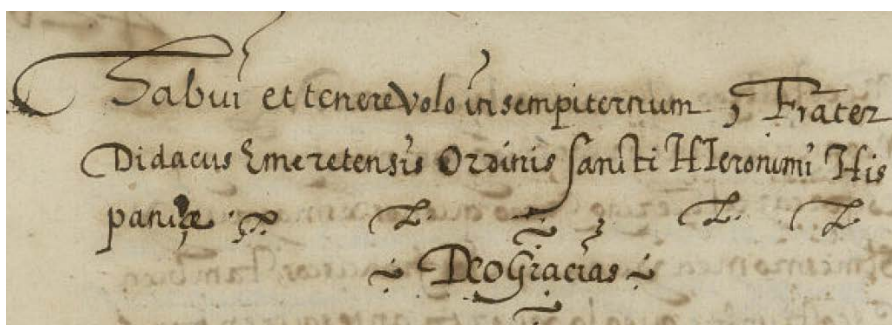 Habui et tenere volo in sempiternum, Frater
Didacus Emeretensis Ordinis Sancti HIeronimi His
paniæ
Deo Gracias